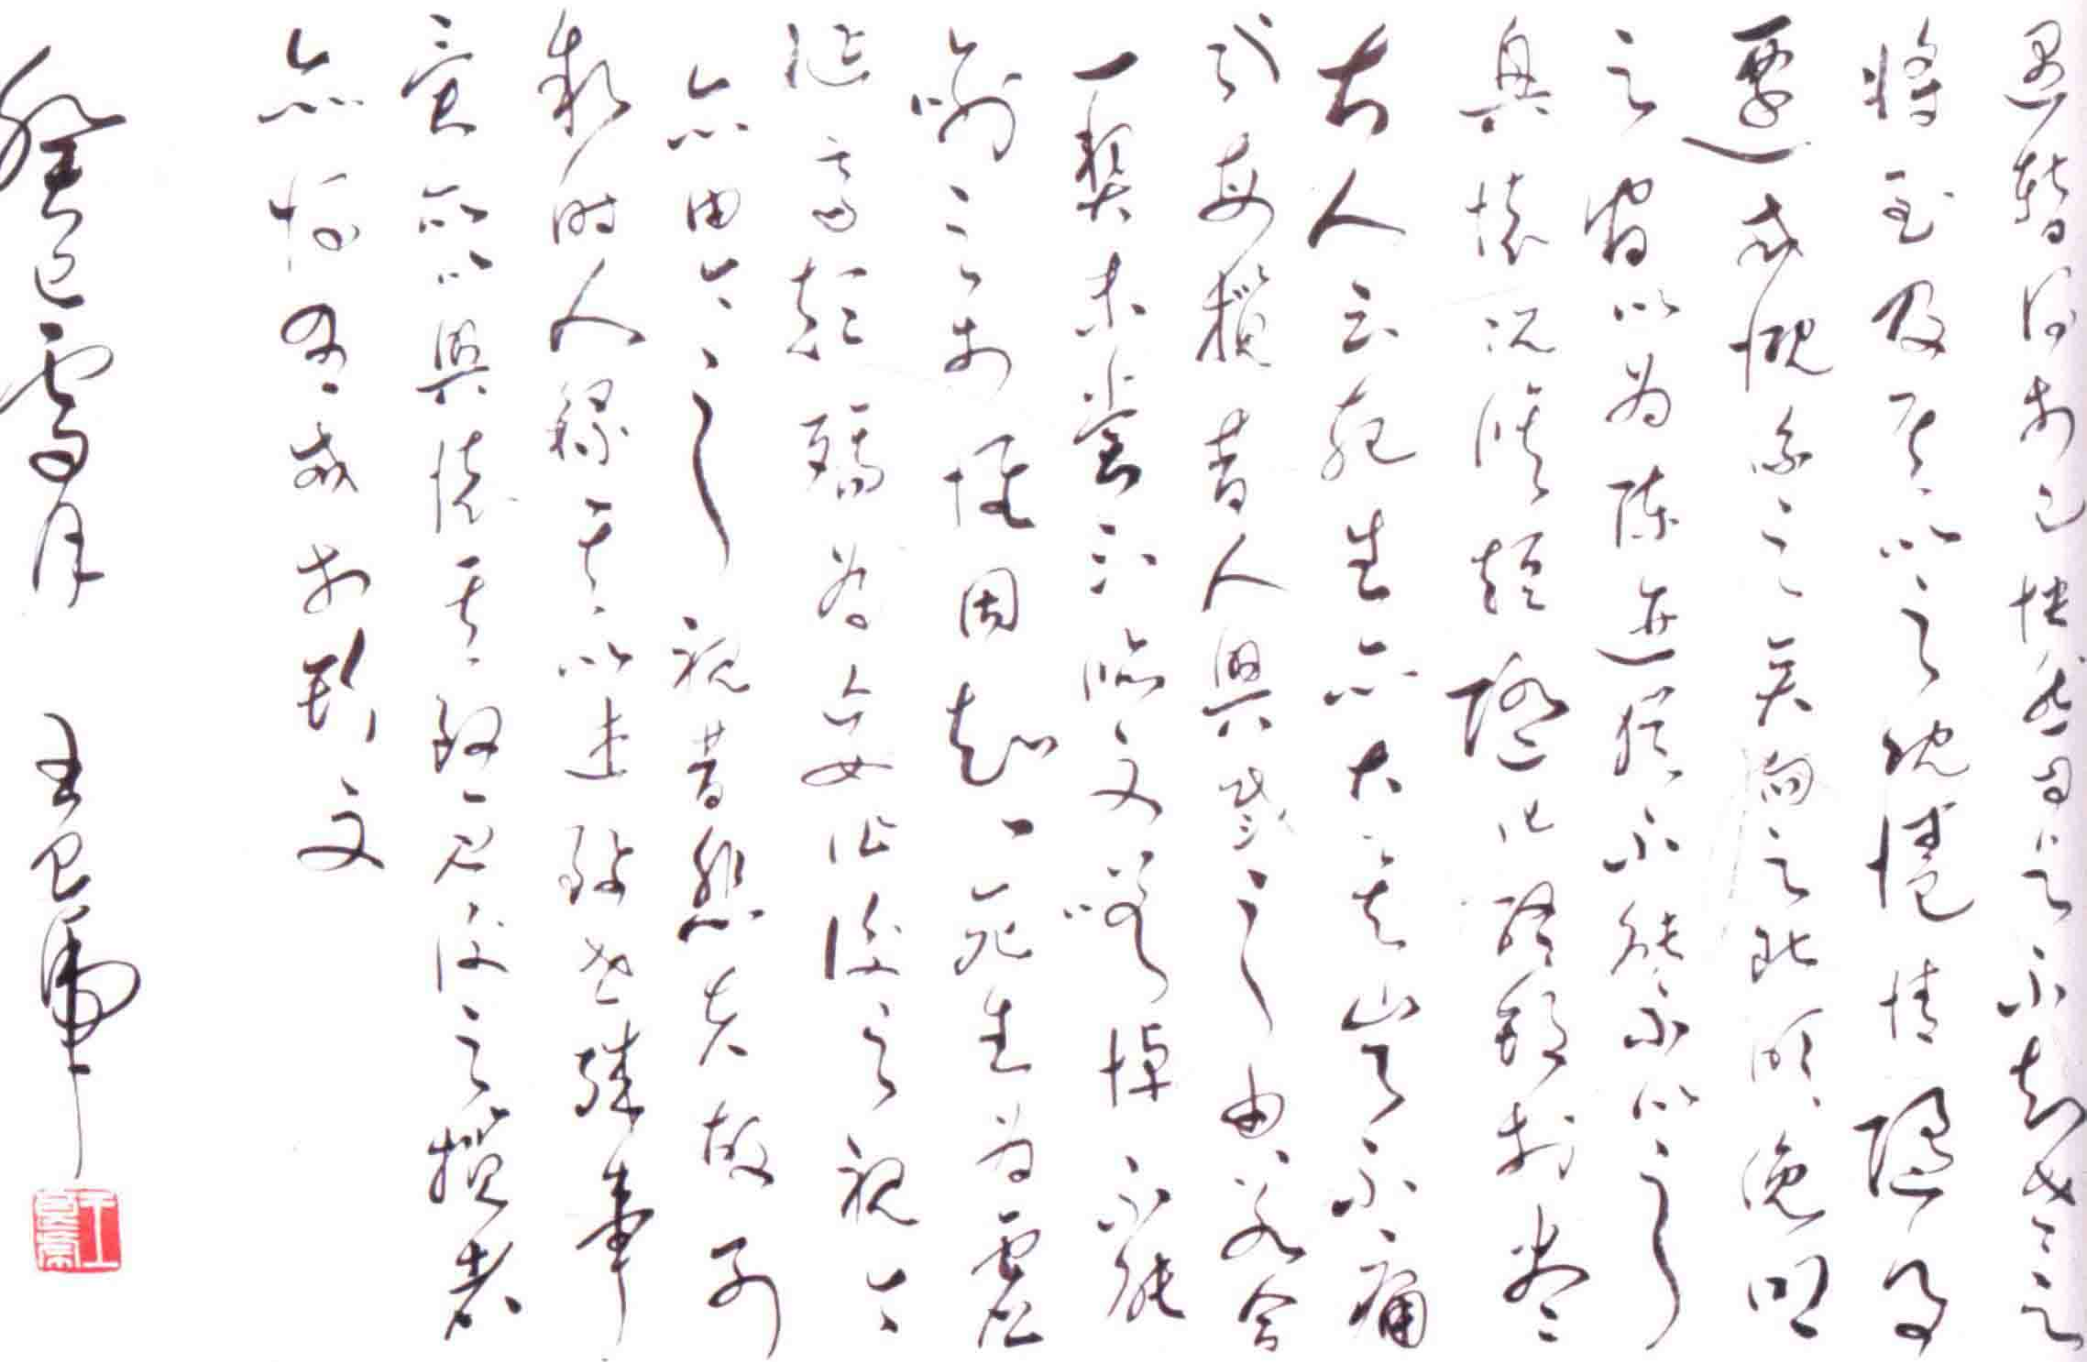 遇暫得於己快然自足不知老之
將至及其所之既惓情隨事
遷感慨係之矣向之所欣俛仰
之間以為陳迹猶不能不以之
興懷況脩短隨化終期於盡
古人云死生亦大矣豈不痛
哉每攬昔人興感之由若合
一契未嘗不臨文嗟悼不能
喻之於懷固知一死生為虛
誕齊彭殤為妄作後之視今
亦由今之視昔悲夫故列
敘時人錄其所述雖世殊事
異所以興懷其致一也後之攬者
亦將有感於斯文
癸巳雪月 王